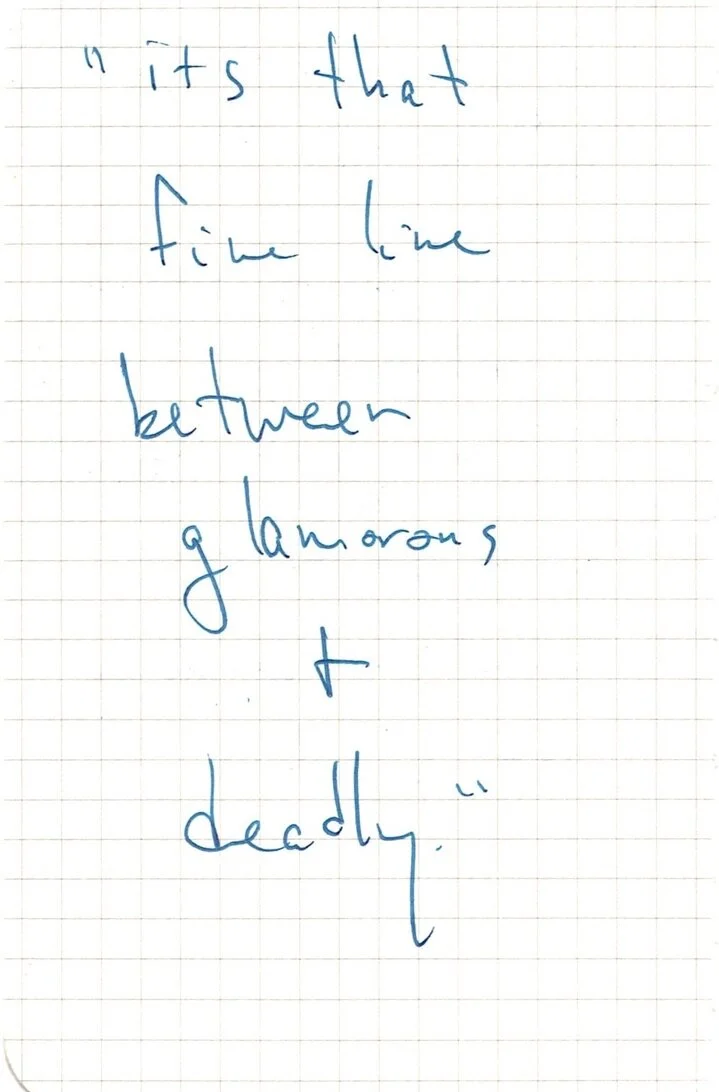 "its that
fine line
between
glamorous
+
deadly."